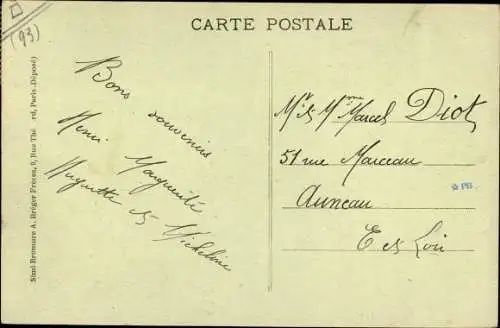 (93)
CARTE POSTALE
Bons souvenirs
Henri Marguerite
Huguette et Micheline
Mr & Mme Marcel Diot
51 rue Marceau
Auneau
E et Loir
Simi-Bromure A. Breger Frères, 9, Rue Thé rd, Paris. (Déposé)